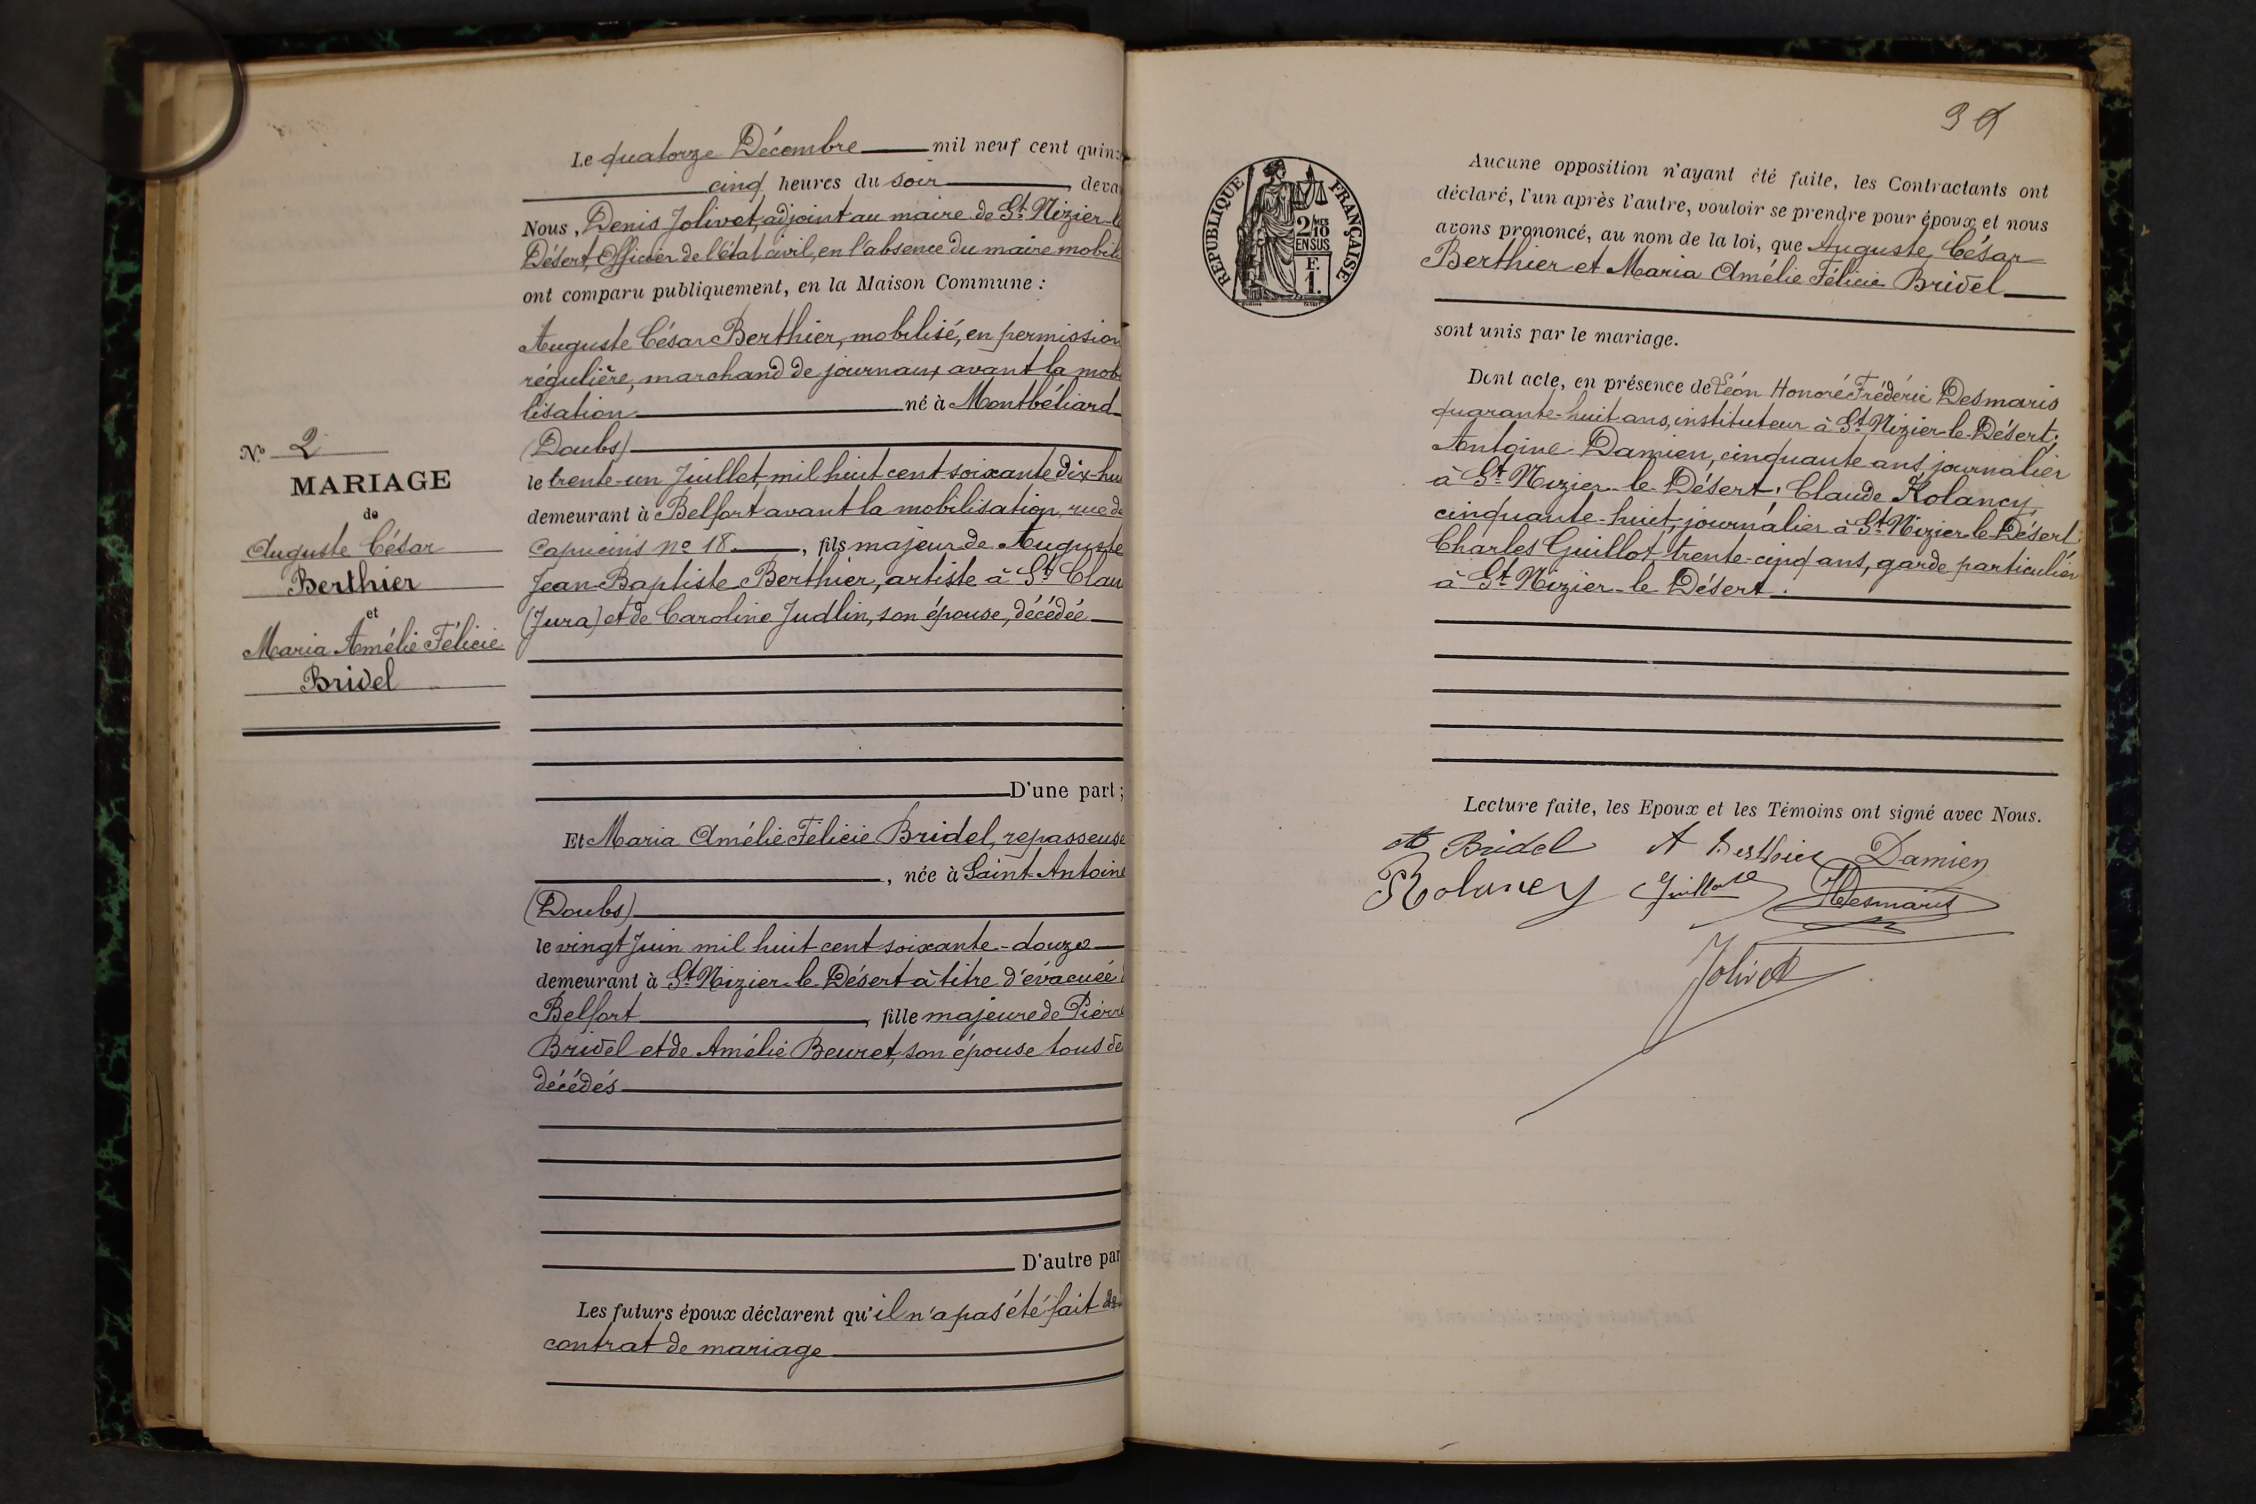 N° 2
MARIAGE
de
Auguste César
Berthier
et
Maria Amélie Félicie
Bridel
Le quatorze Décembre mil neuf cent quinz
cinq heures du soir, deva
Nous, Denis Jolivet, adjoint au maire de St Nizier-l
Désert, Officier de l'état civil, en l'absence du maire mobili
ont comparu publiquement, en la Maison Commune :
Auguste César Berthier, mobilisé, en permission
régulière, marchand de journaux avant la mobi
lisation né à Montbéliard
(Doubs)
le trente-un Juillet mil huit cent soixante dix-hui
demeurant à Belfort avant la mobilisation, rue de
Capucins no 18, fils majeur de Auguste
Jean-Baptiste Berthier, artiste à St Clau
(Jura) et de Caroline Judlin, son épouse, décédée
D'une part ;
Et Maria Amélie Félicie Bridel, repasseuse
, née à Saint-Antoine
(Doubs)
le vingt Juin mil huit cent soixante-douze
demeurant à St Nizier-le-Désert à titre d'évacuée
Belfort, fille majeure de Pierre
Bridel et de Amélie Beuret, son épouse tous de
décédés
D'autre par
Les futurs époux déclarent qu'il n'a pas été fait de
contrat de mariage
REPUBLIQUE FRANÇAISE
2/10 EN SUS
F.
1.
Aucune opposition n'ayant été faite, les Contractants ont
déclaré, l'un après l'autre, vouloir se prendre pour époux et nous
avons prononcé, au nom de la loi, que Auguste César
Berthier et Maria Amélie Félicie Bridel
sont unis par le mariage.
Dont acte, en présence de Léon Honoré Frédéric Desmaris
quarante-huit ans, instituteur à St Nizier-le-Désert;
Antoine Damien, cinquante ans, journalier
à St Nizier-le-Désert; Claude Kolancy,
cinquante-huit, journalier à St Nizier-le-Désert;
Charles Guillot, trente-cinq ans, garde particulier
à St Nizier-le-Désert.
Lecture faite, les Epoux et les Témoins ont signé avec Nous.
Bridel A Berthier Damien
Kolancy Guillot Desmaris
Jolivet